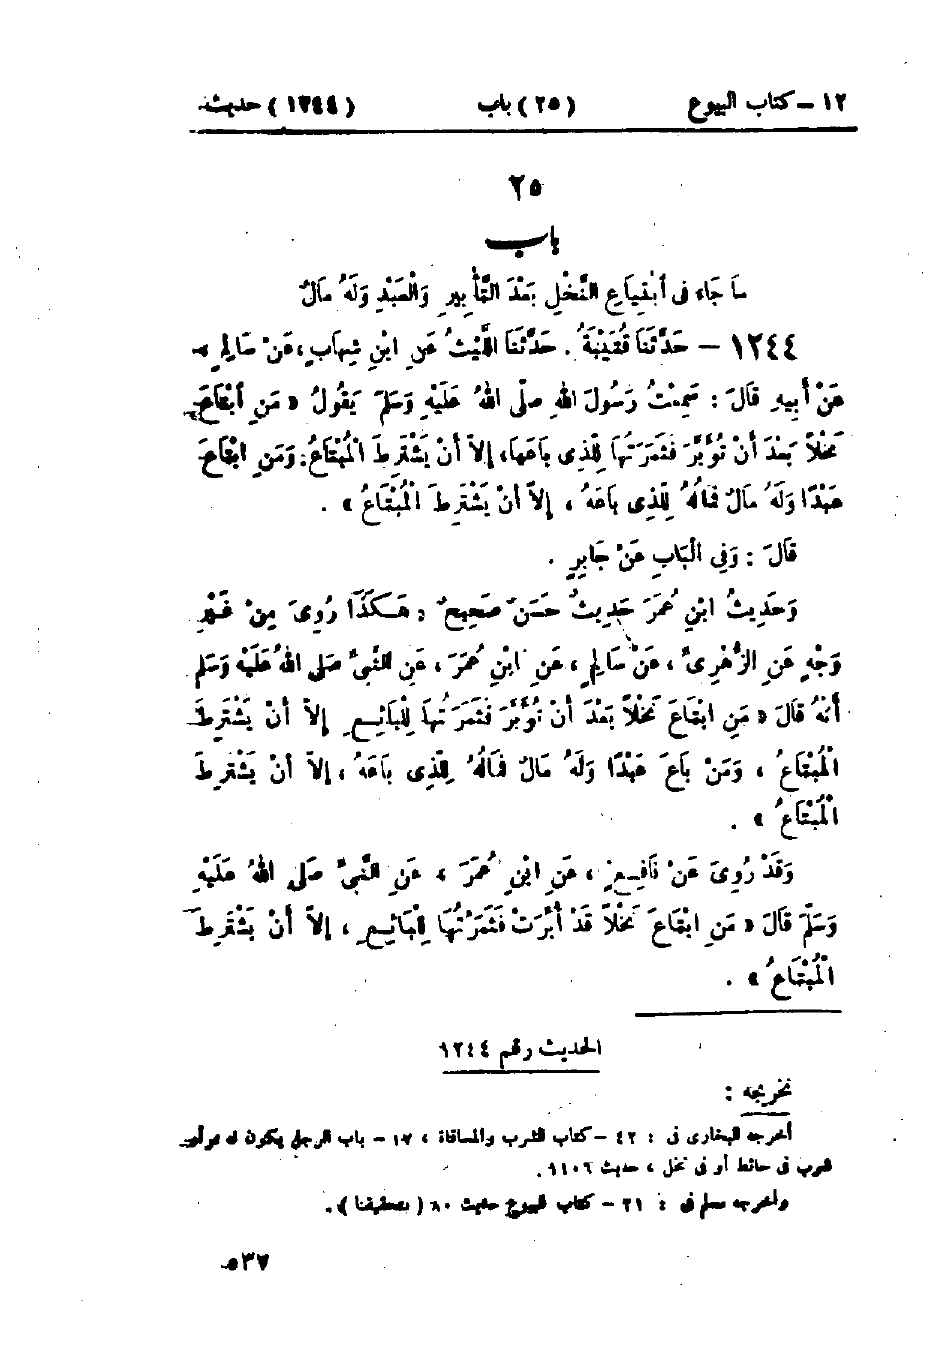 ١٢ – كتاب البيوع (٢٥) باب (١٢٤٤) حديث
٢٥
باب
مَا جَاء فى ابْتِيَاعِ النَّخْلِ بَعْدَ التَّأْبِيرِ وَالْعَبْدِ وَلَهُ مَالٌ
١٢٤٤ – حَدَّثَنَا قُتَيْبَةُ . حَدَّثَنَا اللَّيْثُ عَنِ ابْنِ شِهَابٍ، عَنْ سَالِمٍ،
عَنْ أَبِيهِ قَالَ : سَمِعْتُ رَسُولَ اللهِ صلّى اللهُ عَلَيْهِ وَسَلّمَ يَقُولُ « مَنِ ابْتَاعَ
نَخْلاً بَعْدَ أَنْ تُؤَبَّرَ فَثَمَرَتُهَا لِلّذِى بَاعَهَا، إِلاّ أَنْ يَشْتَرِطَ الْمُبْتَاعُ. وَمَنِ ابْتَاعَ
عَبْدًا وَلَهُ مَالٌ فَمَالُهُ لِلّذِى بَاعَهُ ، إِلاّ أَنْ يَشْتَرِطَ الْمُبْتَاعُ » .
قَالَ : وَفِى الْبَابِ عَنْ جَابِرٍ .
وَحَدِيثُ ابْنِ عُمَرَ حَدِيثٌ حَسَنٌ صَحِيحٌ ؛ هَـكَذَا رُوِىَ مِنْ غَيْرِ
وَجْهٍ عَنِ الزُّهْرِىِّ ، عَنْ سَالِمٍ ، عَنِ ابْنِ عُمَرَ ، عَنِ النَّبىِّ صَلى اللهُ عَلَيْهِ وَسَلم
أَنّهُ قَالَ « مَنِ ابْتَاعَ نَخْلاً بَعْدَ أَنْ تُؤَبَّرَ فَثَمَرَتُهَا لِلْبَائِـعِ إِلاّ أَنْ يَشْتَرِطَ
الْمُبْتَاعُ ، وَمَنْ بَاعَ عَبْدًا وَلَهُ مَالٌ فَمَالُهُ لِلّذِى بَاعَهُ ، إِلاّ أَنْ يَشْتَرِطَ
الْمُبْتَاعُ » .
وَقَدْ رُوِىَ عَنْ نَافِـعٍ ، عَنِ ابْنِ عُمَرَ ، عَنِ النَّبىِّ صَلى اللهُ عَلَيْهِ
وَسَلّمَ قَالَ « مَنِ ابْتَاعَ نَخْلاً قَدْ أُبِّرَتْ فَثَمَرَتُهَا لِلْبَائِـعِ ، إِلاّ أَنْ يَشْتَرِطَ
الْمُبْتَاعُ » .
الحديث رقم ١٢٤٤
تخريجه :
أخرجه البخارى فى : ٤٢ – كتاب الشرب والمساقاة ، ١٧ – باب الرجل يكون له ممر أو
شرب فى حائط أو فى نخل ، حديث ١١٠٦ .
وأخرجه مسلم فى : ٢١ – كتاب البيوع حديث ٨٠ (بتحقيقنا ) .
٥٣٧